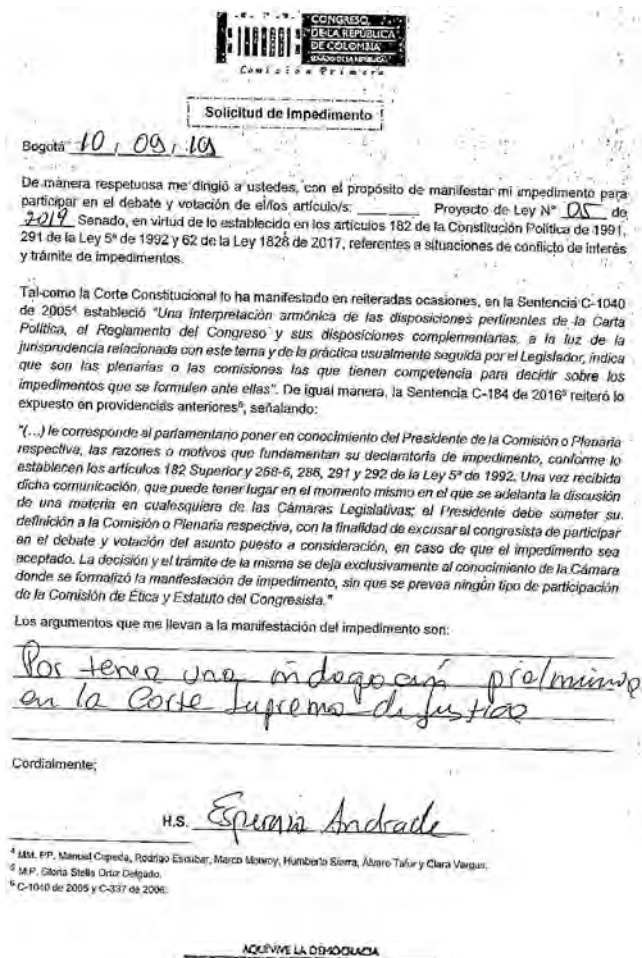 CONGRESO
DE LA REPÚBLICA
DE COLOMBIA
SENADO DE LA REPÚBLICA
Comisión Primera
Solicitud de Impedimento
Bogotá 10, 09, 19
De manera respetuosa me dirigió a ustedes, con el propósito de manifestar mi impedimento para
participar en el debate y votación de el/los artículo/s: ________ Proyecto de Ley N° 05 de
2019 Senado, en virtud de lo establecido en los artículos 182 de la Constitución Política de 1991,
291 de la Ley 5ª de 1992 y 62 de la Ley 1828 de 2017, referentes a situaciones de conflicto de interés
y trámite de impedimentos.
Tal como la Corte Constitucional lo ha manifestado en reiteradas ocasiones, en la Sentencia C-1040
de 2005⁴ estableció "Una interpretación armónica de las disposiciones pertinentes de la Carta
Política, el Reglamento del Congreso y sus disposiciones complementarias, a la luz de la
jurisprudencia relacionada con este tema y de la práctica usualmente seguida por el Legislador, indica
que son las plenarias o las comisiones las que tienen competencia para decidir sobre los
impedimentos que se formulen ante ellas". De igual manera, la Sentencia C-184 de 2016⁵ reiteró lo
expuesto en providencias anteriores⁶, señalando:
"(...) le corresponde al parlamentario poner en conocimiento del Presidente de la Comisión o Plenaria
respectiva, las razones o motivos que fundamentan su declaratoria de impedimento, conforme lo
establecen los artículos 182 Superior y 268-6, 286, 291 y 292 de la Ley 5ª de 1992. Una vez recibida
dicha comunicación, que puede tener lugar en el momento mismo en el que se adelanta la discusión
de una materia en cualesquiera de las Cámaras Legislativas; el Presidente debe someter su
definición a la Comisión o Plenaria respectiva, con la finalidad de excusar al congresista de participar
en el debate y votación del asunto puesto a consideración, en caso de que el impedimento sea
aceptado. La decisión y el trámite de la misma se deja exclusivamente al conocimiento de la Cámara
donde se formalizó la manifestación de impedimento, sin que se prevea ningún tipo de participación
de la Comisión de Ética y Estatuto del Congresista."
Los argumentos que me llevan a la manifestación del impedimento son:
Por tener una indagación preliminar
en la Corte Suprema de Justicia
Cordialmente;
H.S. Esperanza Andrade
⁴ MM. PP. Manuel Cepeda, Rodrigo Escobar, Marco Monroy, Humberto Sierra, Álvaro Tafur y Clara Vargas.
⁵ M.P. Gloria Stella Ortiz Delgado.
⁶ C-1040 de 2005 y C-337 de 2006.
AQUÍ VIVE LA DEMOCRACIA